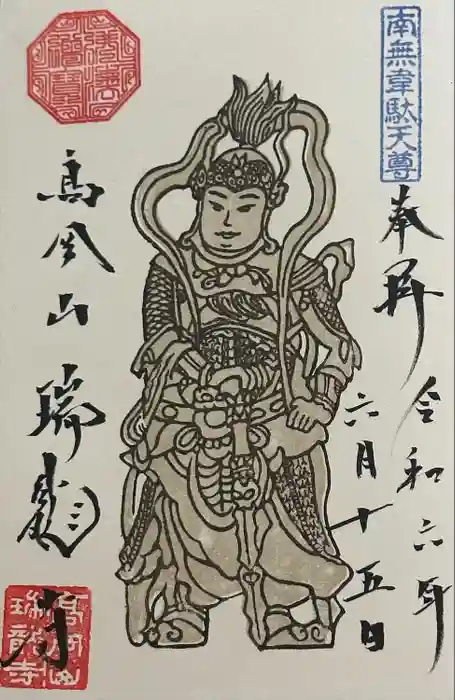 南無韋駄天尊
奉拝
令和六年
六月十五日
高岡山 瑞龍寺
高岡山
瑞龍寺